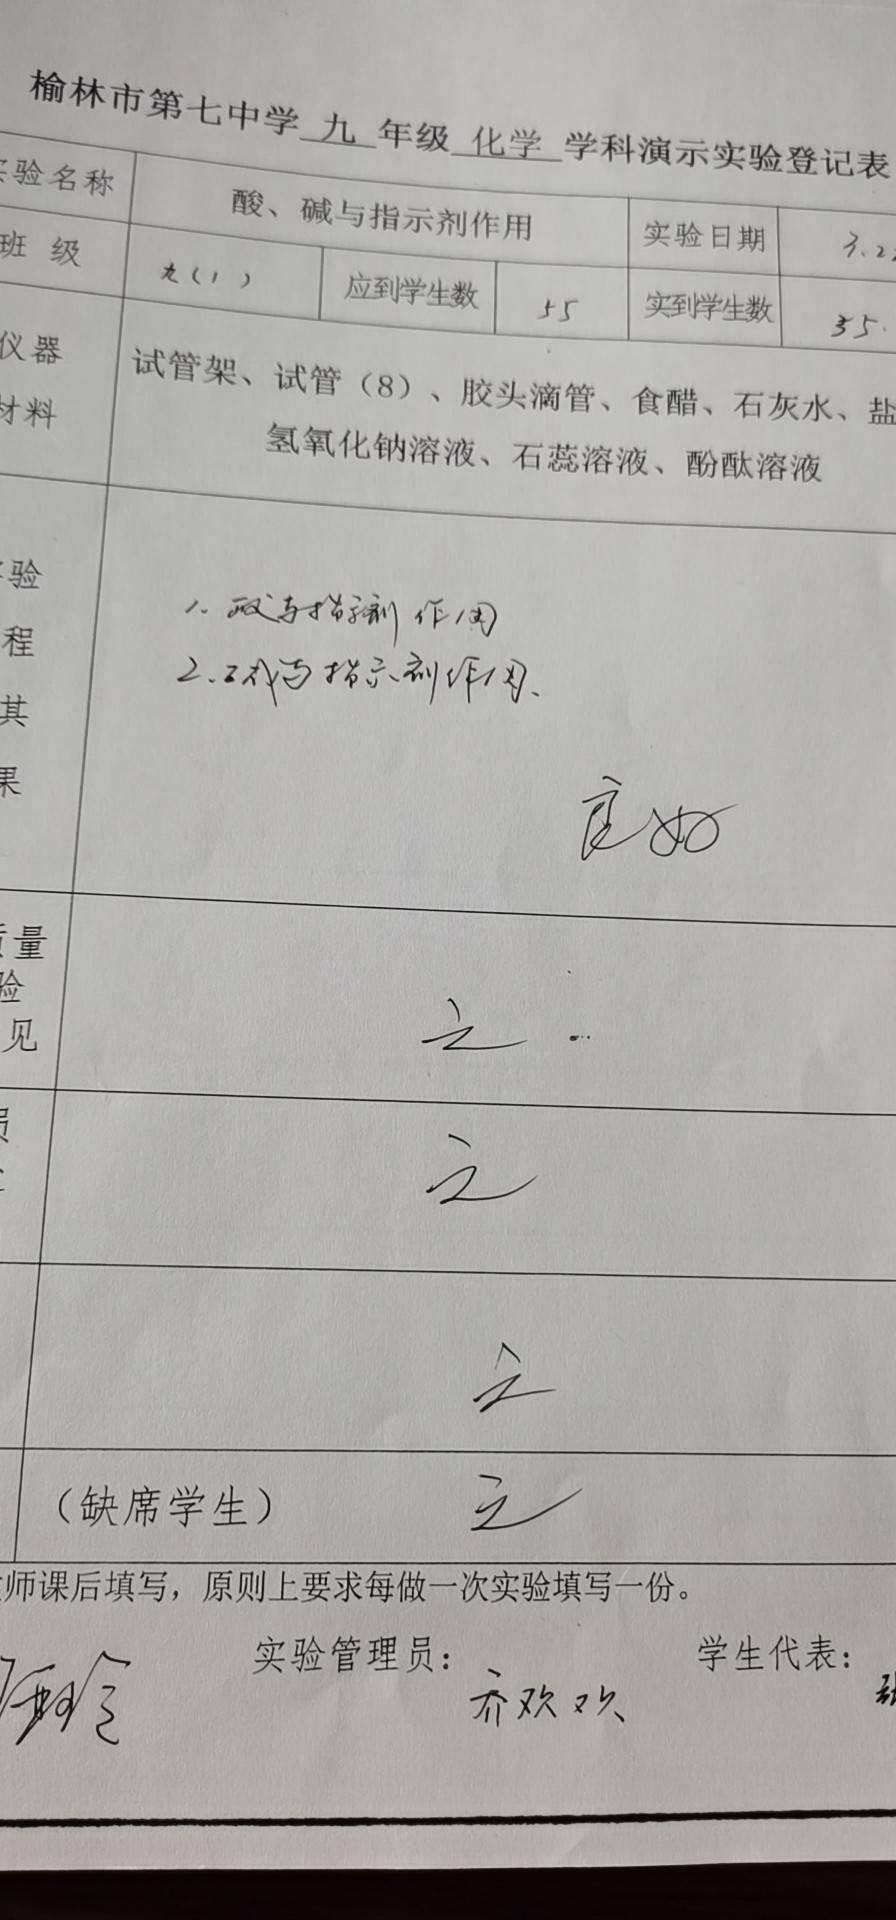 榆林市第七中学 九 年级 化学 学科演示实验登记表
实验名称 酸、碱与指示剂作用 实验日期 3.2
班 级 九(1) 应到学生数 55 实到学生数 55.
仪器 试管架、试管（8）、胶头滴管、食醋、石灰水、盐
材料 氢氧化钠溶液、石蕊溶液、酚酞溶液
验
程
其
果
1. 酸与指示剂作用
2. 碱与指示剂作用、
良好
质量
验
见
无
损
无
无
（缺席学生） 无
师课后填写，原则上要求每做一次实验填写一份。
实验管理员： 乔欢欢 学生代表： 张